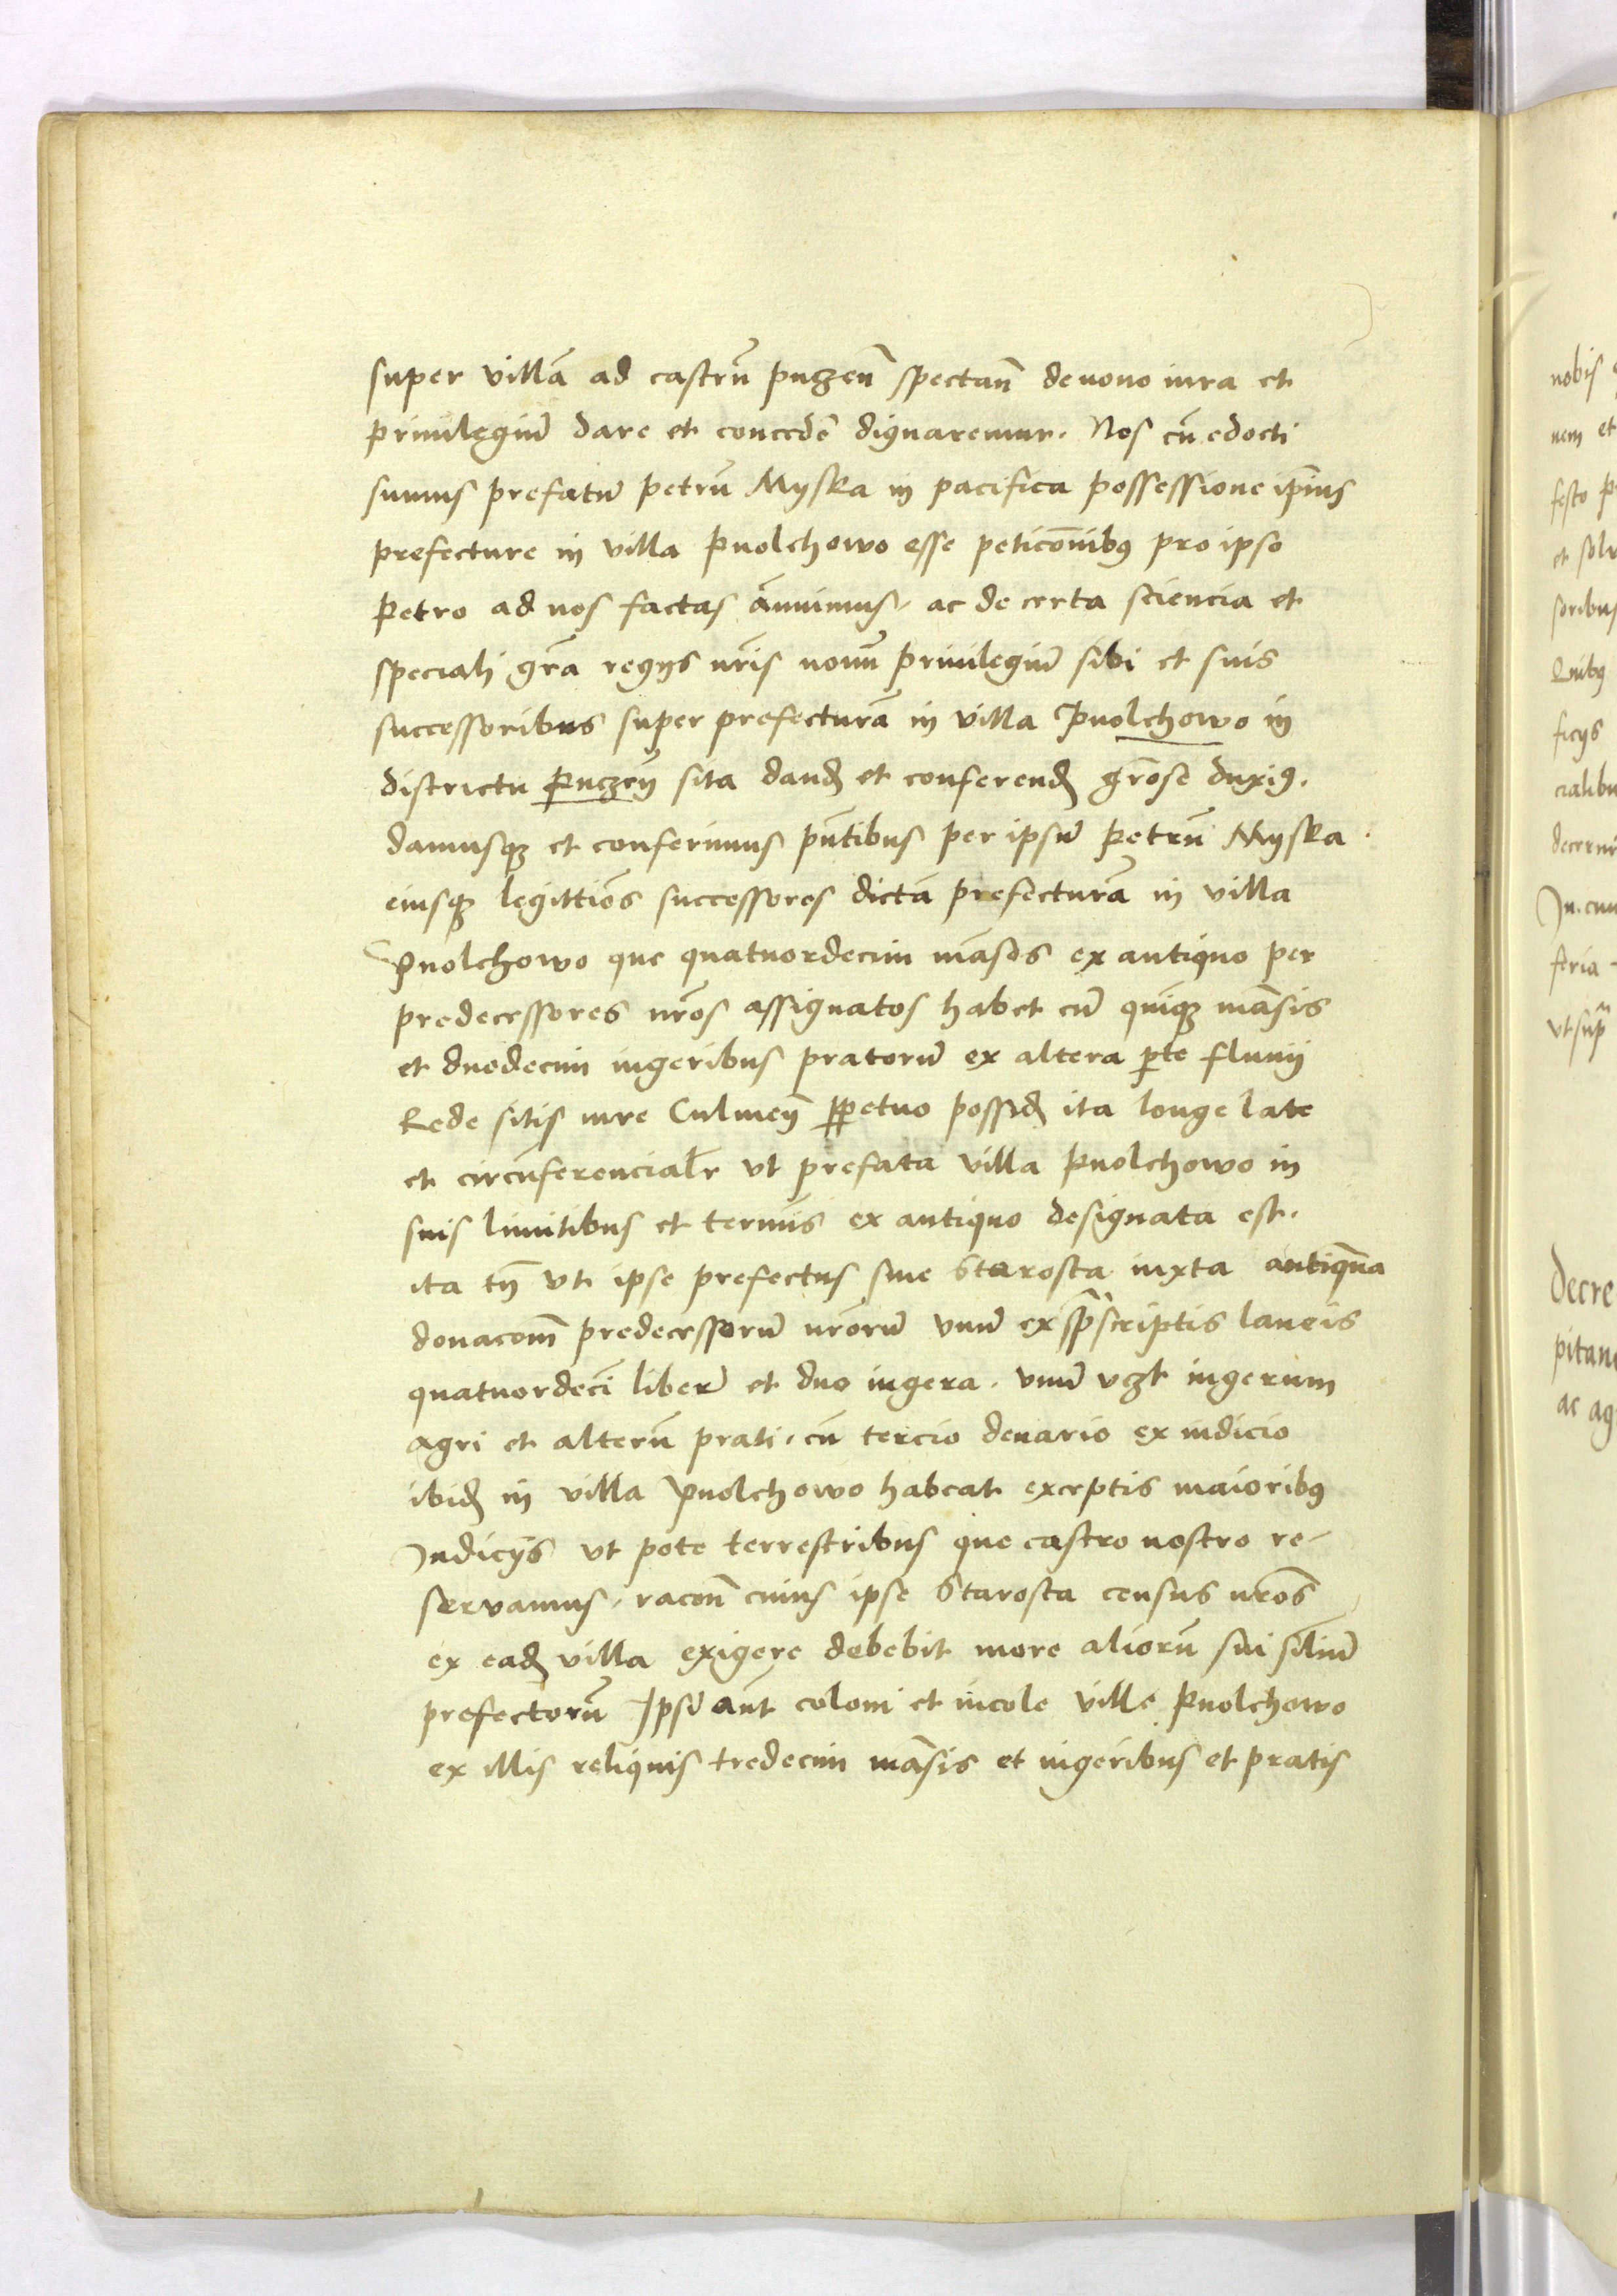 super villā ad castrū puczen̄ spectan̄ denouo iura et
priuilegiū dare et concedē dignaremur. Nos cū edocti
sumus prefatū petrū Myska in pacifica possessione ip̄ius
prefecture in villa puolchowo esse peticōnibꝰ pro ipso
Petro ad nos factas ānuimus, ac de certa sciencia et
speciali gr̄a regijs nr̄is nouū priuilegiū sibi et suis
successoribus super prefecturā in villa Puolchowo in
districtu Puczen̄ sita dand et conferend gr̄ose duxiꝰ.
damusqꝫ et conferimus pn̄tibus per ipsū Petrū Myska
eiusqꝫ legittiōs successores dictā prefecturā in villa
Puolchowo que quatuordecim māsos ex antiquo per
predecessores nr̄os assignatos habet cū quīqꝫ māsis
et duodecim iugeribus pratorū ex altera ꝑte fluuij
Rede sitis iure Culmen̄ ꝑpetuo possid ita longe late
et circūferencialr̄ vt prefata villa Puolchowo in
suis limitibus et termīs ex antiquo designata est.
ita tn̄ vt ipse prefectus siue Starosta iuxta antiquā
donacom̄ predecessorū nr̄orū vnū ex sp̄scriptis laneis
quatuordecī liberū et duo iugera. vnū vczt iugerum
agri et alterū prati. cū tercio denario ex iudicio
ibid in villa Puolchowo habeat exceptis maioribꝰ
Iudicijs vt pote terrestribus que castro nostro re-
servamus, racon̄ cuius ipse Starosta census nr̄os
ex ead villa exigere debebit more aliorū sui sīliū
prefectorū Ipsi aūt coloni et incole ville Puolchowo
ex illis reliquis tredecim māsis et iugeribus et pratis
nobis
nem et
festo
et solu
soribus
Quibꝰ
ficijs
cialibu
decerni
In cui
feria
vt sup̄
Decre
pitan
ac ag